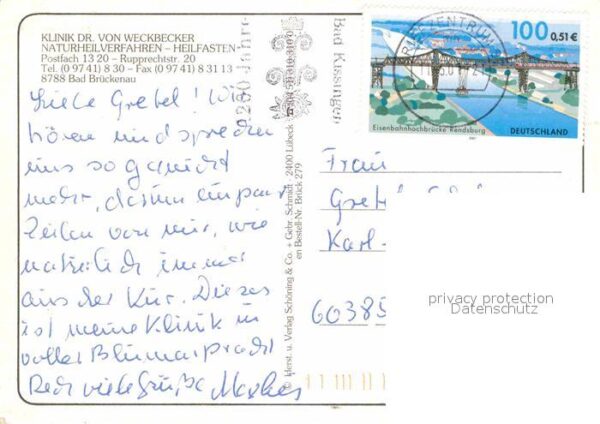 KLINIK DR. VON WECKBECKER
NATURHEILVERFAHREN – HEILFASTEN
Postfach 13 20 – Rupprechtstr. 20
Tel. (0 97 41) 8 30 – Fax (0 97 41) 8 31 13
8788 Bad Brückenau
Liebe Gretel! Wir
hören und sprechen
uns so gar nicht
mehr, darum ein paar
Zeilen von mir, wie
natürlich immer
aus der Kur. Dieses
ist meine Klinik in
voller Blumenpracht
viele Grüße
© Herst. u. Verlag Schöning & Co. + Gebr. Schmidt · 2400 Lübeck
Bestell-Nr. Brück 279
Jahre
Bad Kissingen
100
0,51€
Eisenbahnhochbrücke Rendsburg
DEUTSCHLAND
Frau
Karl-
60385
privacy protection
Datenschutz